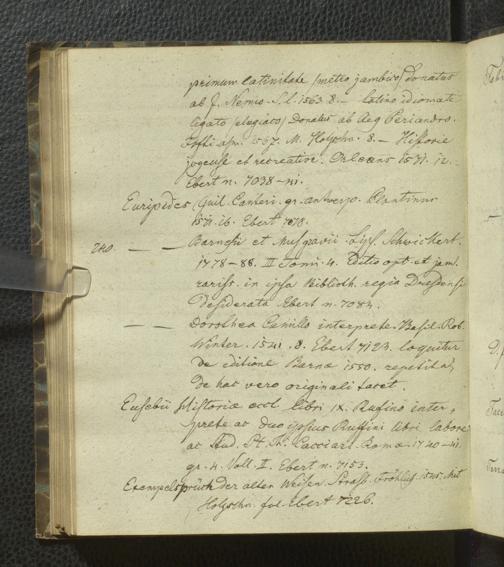 primum latinitate (metro jambico) donatus
ab J. Nemio. S. l. 1563. 8. — latino idiomate
ligato (elegiaco) donatus ab Aeg Periandro.
Fftti a/m. 1567. M. Holzschn. 8. — Histoire
joyeuse et recreative. Orleans 1571. 12.
Ebert n. 7038-41.
Euripides, Guil. Canteri. gr. antwerp. Plantinus
1571. 16. Ebert 7078.
240. — — Barnesii et Musgravii. Lips. Schwickert.
1778-88. III Tomi. 4. Editio opt. et jam.
rariss. in ipsa Biblioth. regia Dresdensi
desiderata Ebert n. 7084.
— — Dorothea Camillo interprete. Basil. Rob.
Winter. 1541. 8. Ebert 7123. loquitur
de editione Bernae 1550. repetita,
de hac vero originali tacet.
Eusebii Historiae eccl. libri IX. Rufino inter-
prete ac duo ipsius Ruffini libri labore
ac stud. Pt. Th. Cacciari. Romae. 1740-41.
gr. 4. Voll. II. Ebert n. 7153.
Exempelsprüch der alten Weisen. Strassb. Frölich. 1545. Mit
Holzschn. fol. Ebert 7226.